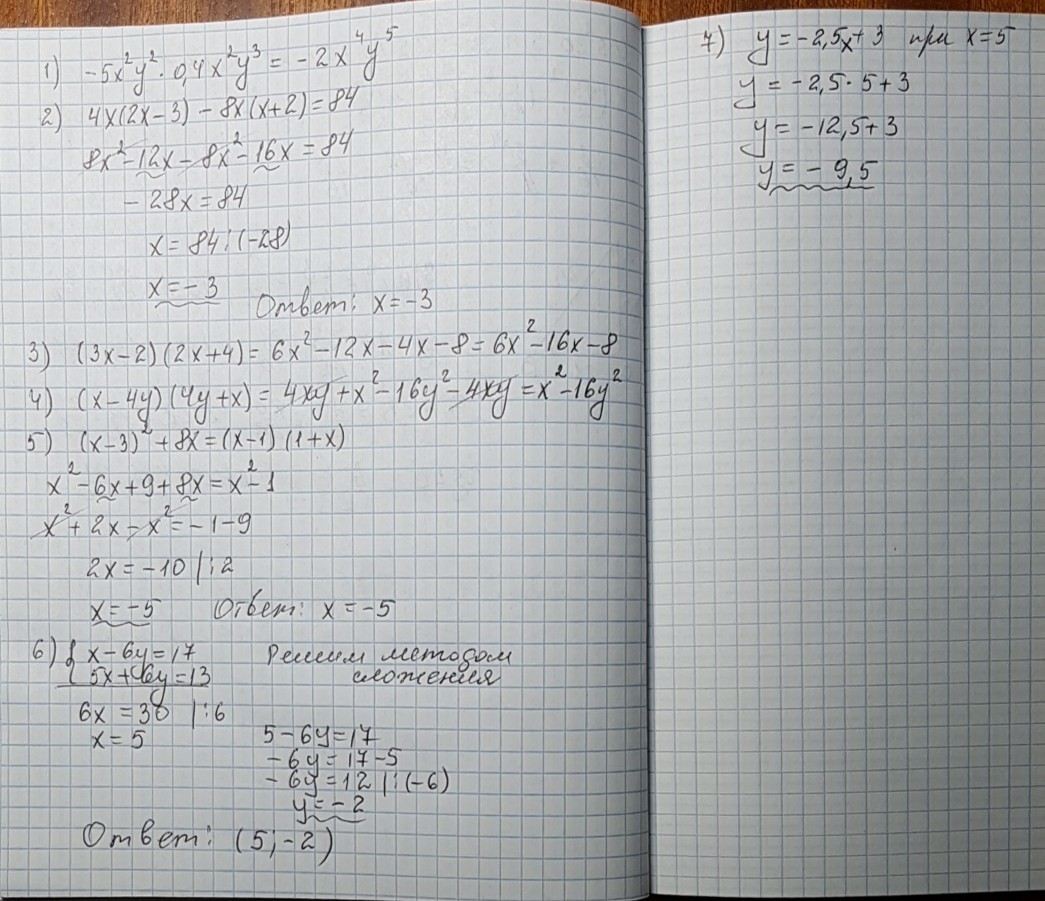 1) -5x²y² · 0,4x²y³ = -2x⁴y⁵
2) 4x(2x-3) - 8x(x+2) = 84
8x² - 12x - 8x² - 16x = 84
-28x = 84
x = 84 : (-28)
x = -3 Ответ: x = -3
3) (3x-2)(2x+4) = 6x² - 12x - 4x - 8 = 6x² - 16x - 8
4) (x-4y)(4y+x) = 4xy + x² - 16y² - 4xy = x² - 16y²
5) (x-3)² + 8x = (x-1)(1+x)
x² - 6x + 9 + 8x = x² - 1
x² + 2x - x² = -1 - 9
2x = -10 |:2
x = -5 Ответ: x = -5
6) { x - 6y = 17 Решим методом
5x + 6y = 13 сложения
6x = 30 |:6
x = 5 5 - 6y = 17
-6y = 17 - 5
-6y = 12 |:(-6)
y = -2
Ответ: (5; -2)
7) y = -2,5x + 3 при x = 5
y = -2,5 · 5 + 3
y = -12,5 + 3
y = -9,5